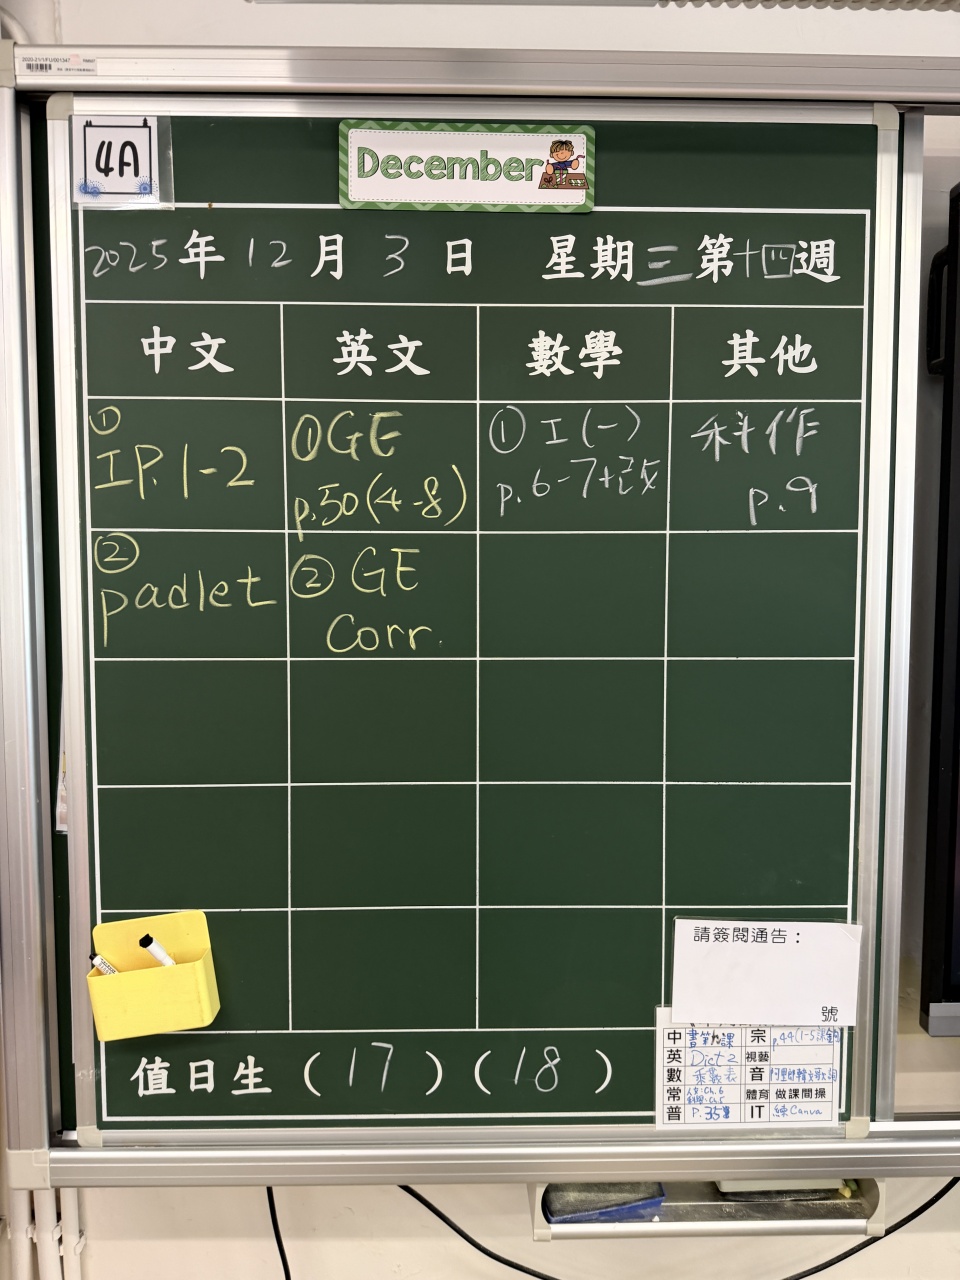 4A
December
2025年 12月 3日 星期三第十四週
中文 英文 數學 其他
① ①GE ① I(一) 科作
IP.1-2 p.50(4-8) p.6-7+改 p.9
② ② GE
padlet Corr.
請簽閱通告：
號
中 書第九課 宗 p.44(1-5課
英 Dict 2 視藝
數 乘數表 音
常 人文:Ch.6 體育 做課間操
科學:Ch.5
普 P.35 IT 練Canva
值日生（17）（18）